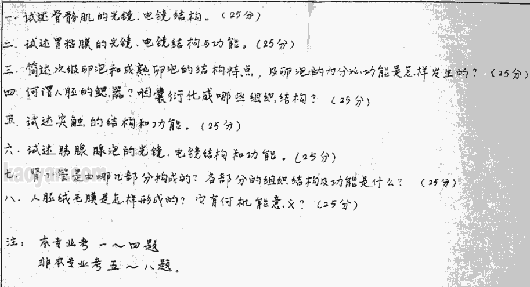 一. 试述骨骼肌的光镜.电镜结构。(25分)
二. 试述胃粘膜的光镜.电镜结构与功能。(25分)
三. 简述次级卵泡和成熟卵泡的结构特点，及卵泡的内分泌功能是怎样发生的？(25分)
四. 何谓人胚的鳃器？咽囊衍化成哪些组织.结构？(25分)
五. 试述突触的结构和功能。(25分)
六. 试述胰腺腺泡的光镜.电镜结构和功能。(25分)
七. 肾小管是由哪几部分构成的？各部分的组织结构及功能是什么？(25分)
八. 人胚绒毛膜是怎样形成的？它有何机能意义？(25分)
注： 本专业考 一～四题
非本专业考 五～八题.